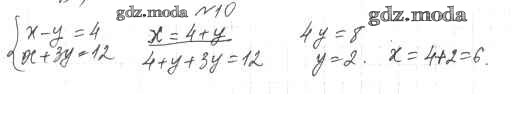 gdz.moda №10 gdz.moda
{ x-y=4 x=4+y 4y=8
x+3y=12 4+y+3y=12 y=2. x=4+2=6.